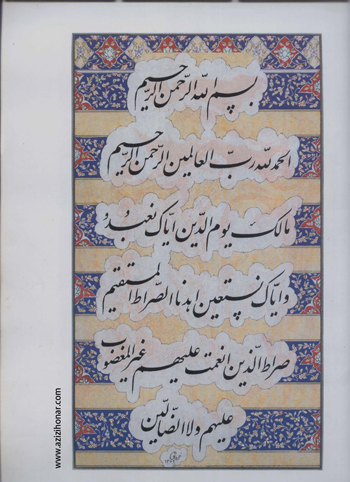 بسم الله الرحمن الرحیم
الحمد لله رب العالمین الرحمن الرحیم
مالک یوم الدین ایاک نعبد و
وایاک نستعین اهدنا الصراط المستقیم
صراط الذین انعمت علیهم غیر المغضوب
علیهم ولا الضالین
www.azizihonar.com